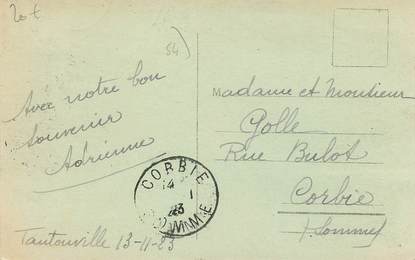 20 t
54
Avec notre bon
souvenir
Adrienne
Madame et Monsieur
Golle
Rue Bulot
Corbie
(Somme)
CORBIE
14
1
23
SOMME
Tantonville 13-11-23